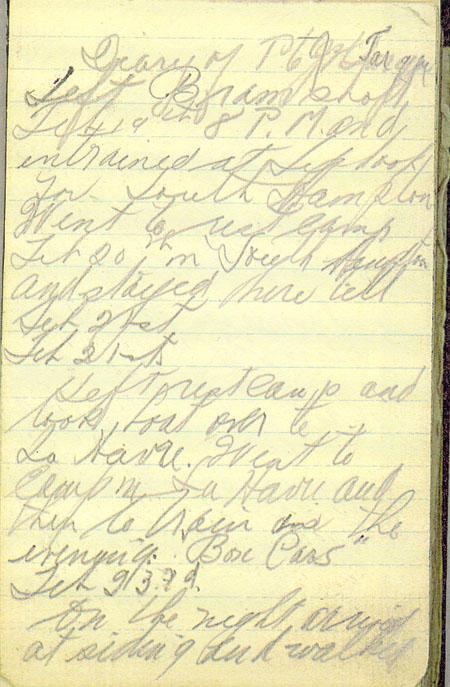 Diary of Pte Fargey
Left Bramshott
Feb 19th 8 P.M. and
entrained at Liphook
for South Hampton
Went to rest camp
Feb 20th in South Hampton
and stayed here till
Feb 21st
Feb 21st
Left rest camp and
took boat over to
La Havre. Went to
camp in La Havre and
then to train in the
evening. Box Cars"
Feb 23rd.
On the night, arrived
at siding and walked